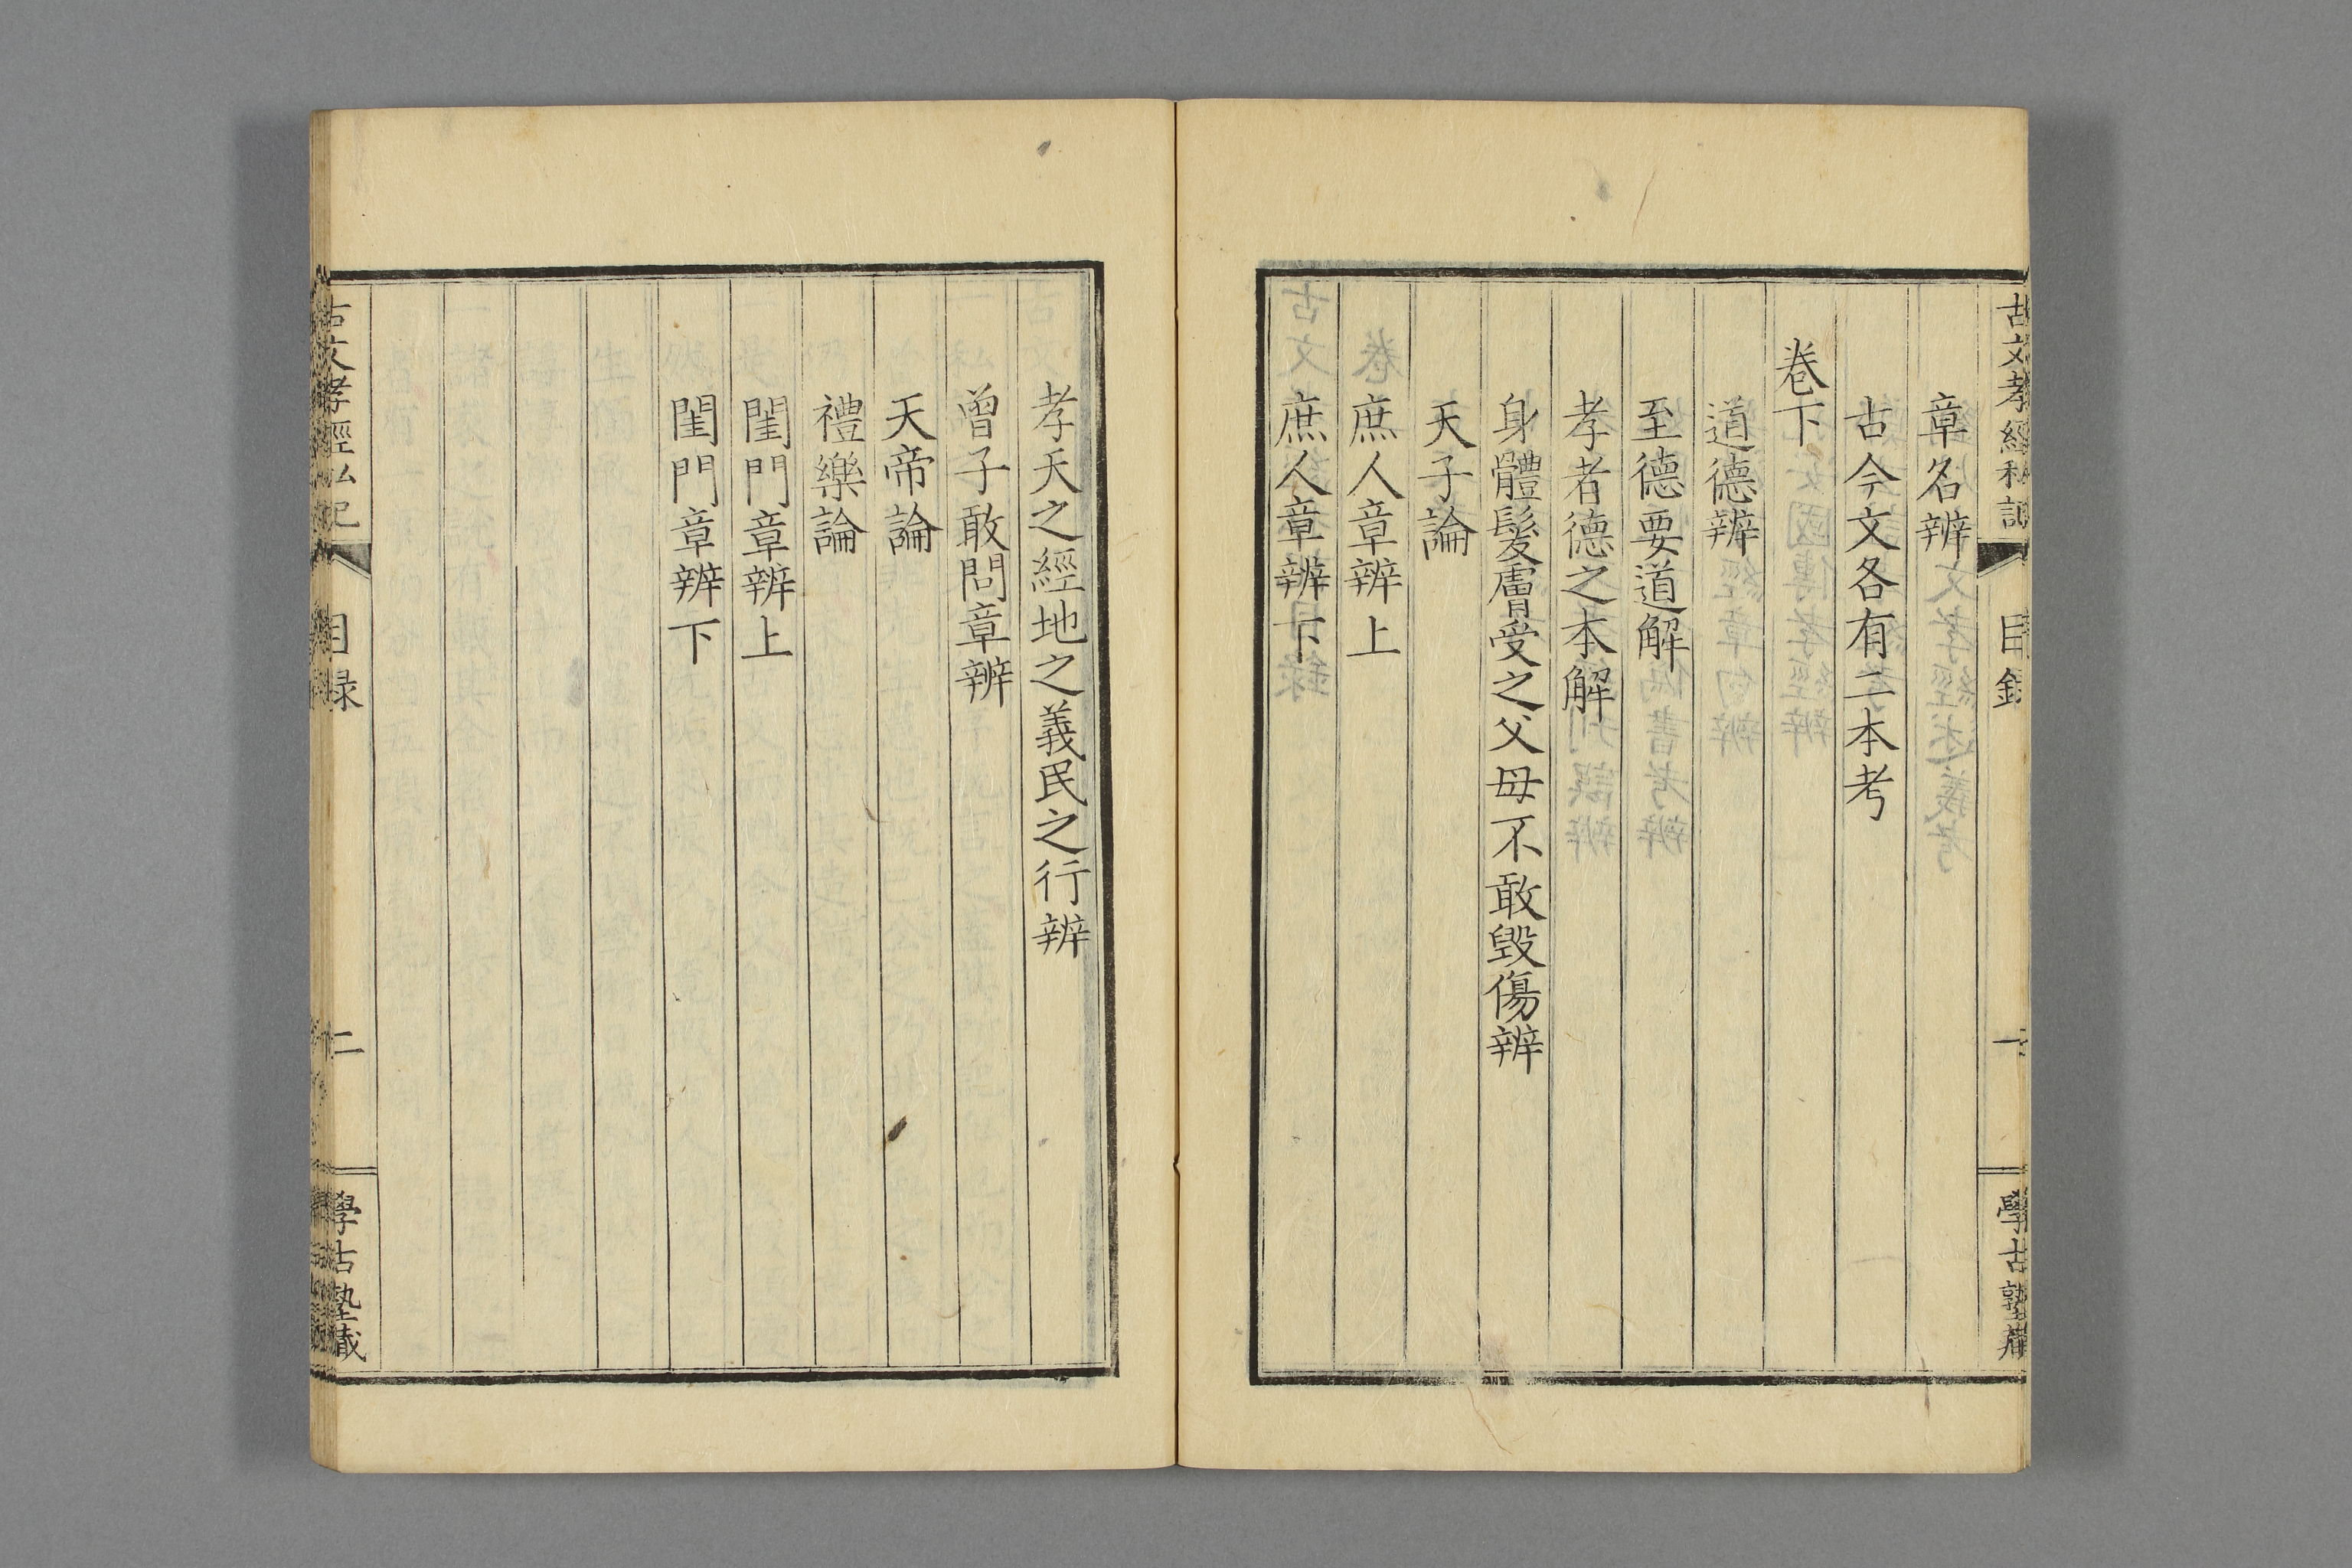 古文孝經私記
目錄
一
學古塾藏
章名辨
古今文各有二本考
卷下
道德辨
至德要道解
孝者德之本解
身體髮膚受之父母不敢毀傷辨
天子論
庶人章辨上
庶人章辨下
孝天之經地之義民之行辨
曾子敢問章辨
天帝論
禮樂論
閨門章辨上
閨門章辨下
古文孝經私記
目録
二
學古塾藏